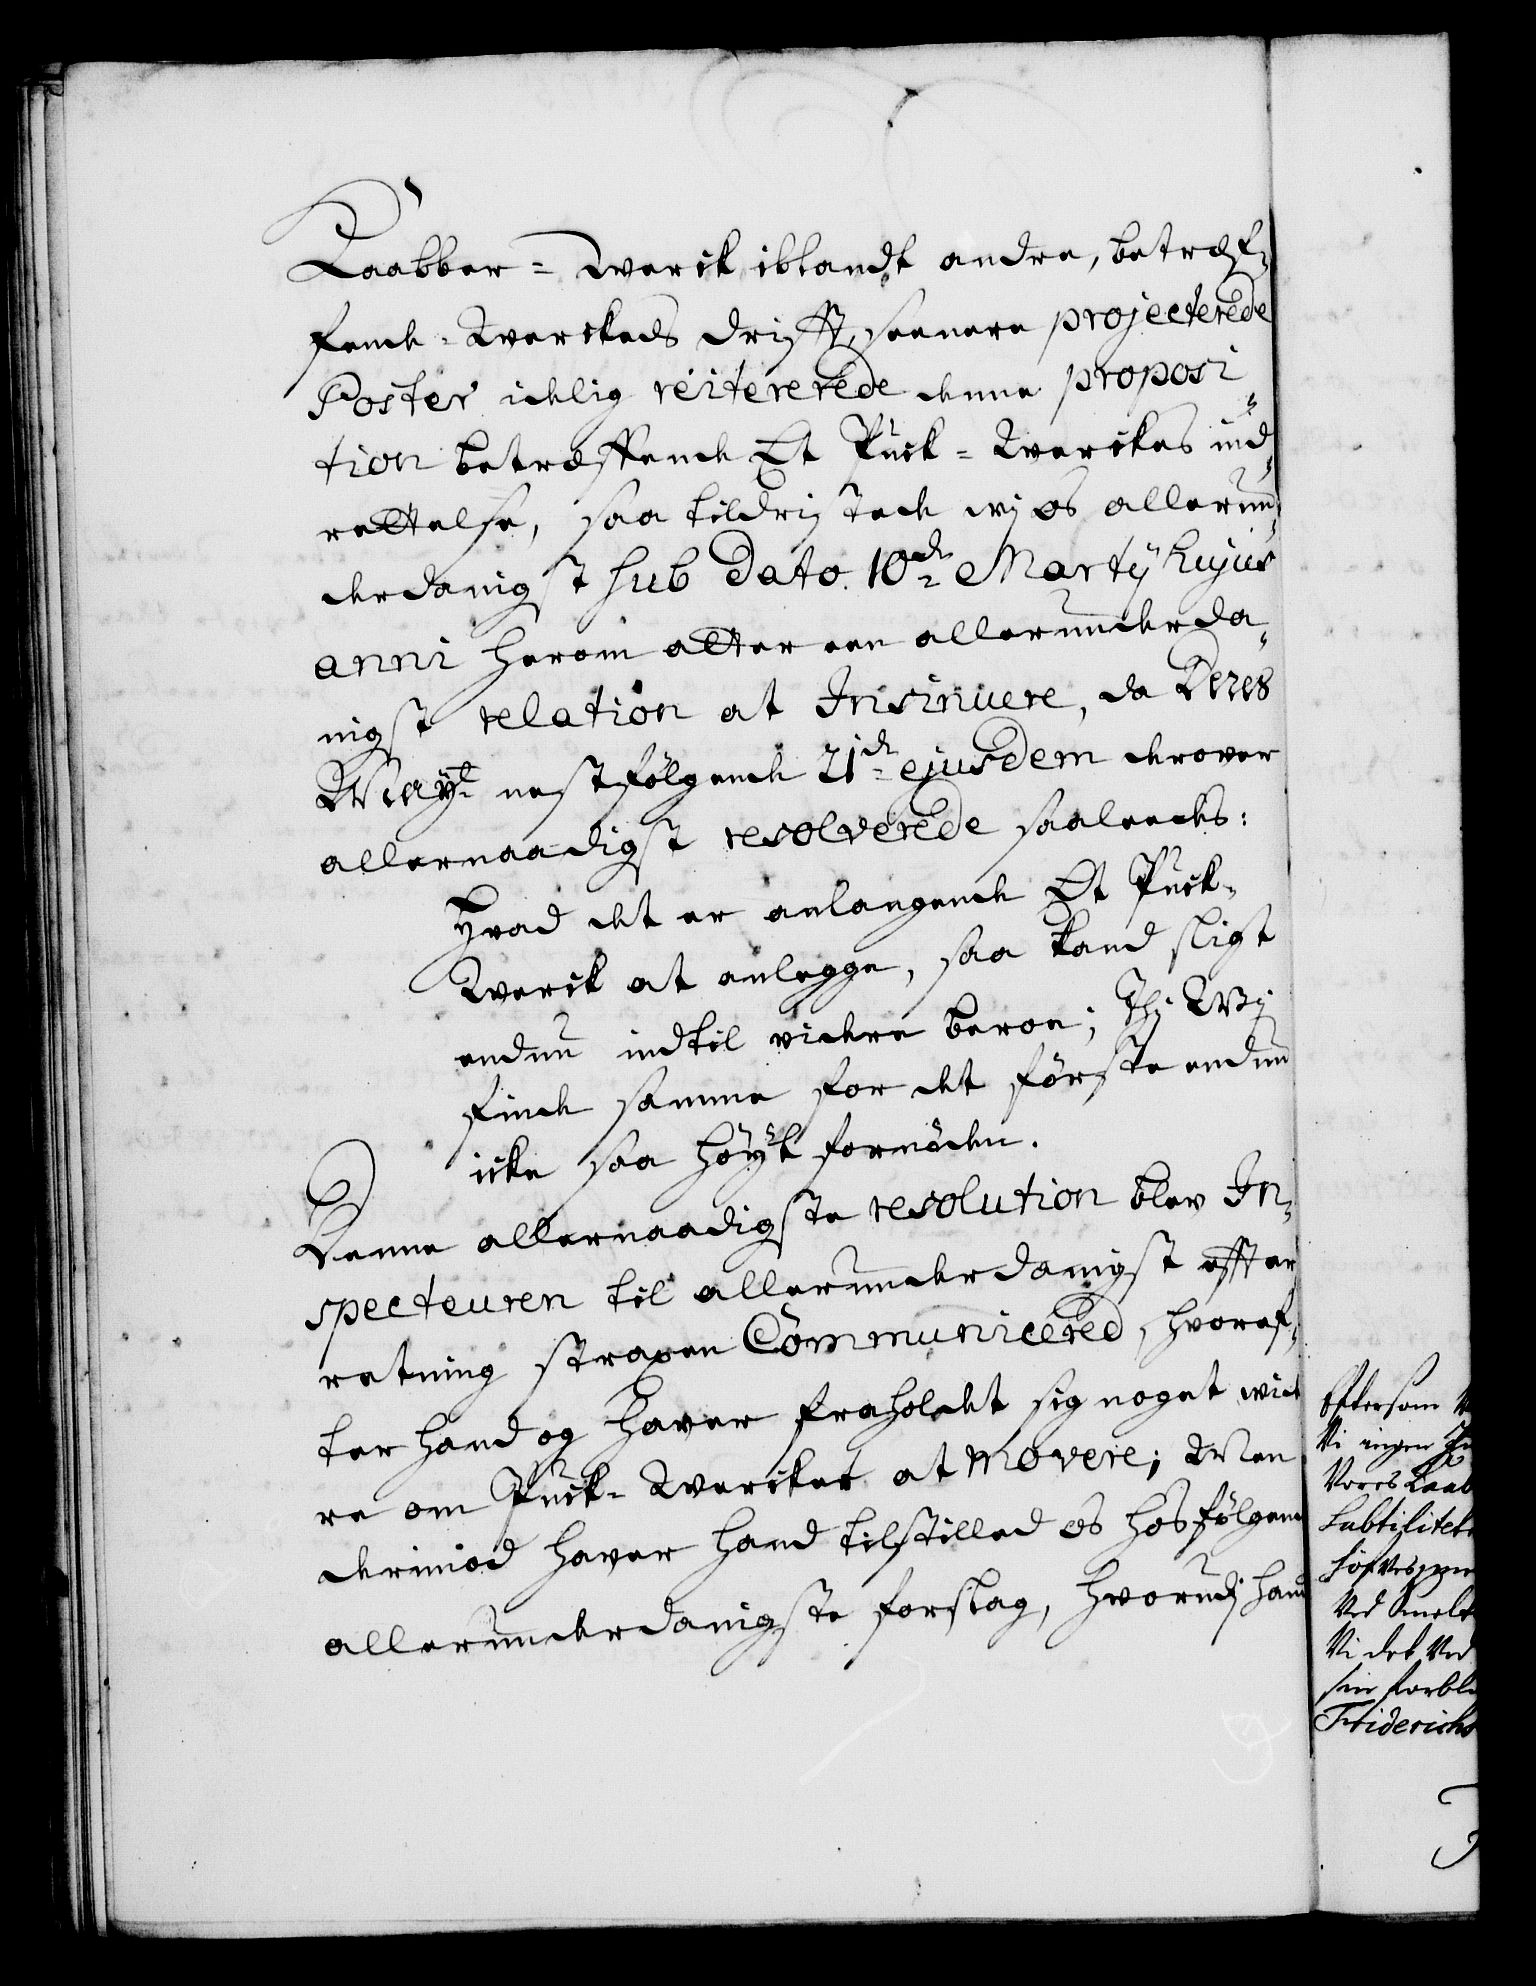 Kaabber= Werck iblandt andre, betræf-
fende Werckeds drifft, seenere projecterede
Poster idelig reitererede denne proposi
tion betræffende Et Puck= Werckes ind-
rettelse, saa tildristede wj os allerun-
derdanigst sub Dato. 10de Martij hujus
anni herom atter een allerunderda-
nigst relation at Insinuere, da Deres
Mayt nestfølgende 21de ejusdem derover
allernaadigst resolverede saaleedes:
Hvad det er anlangende Et Puck-
Werck at anlegge, saa kand sligt
endnu indtil videre beroe; Thj Wj
finde samme for det første endnu
icke saa høyt fornøden.
Denne allernaadigste resolution blev In-
specteuren til allerunderdanigst effter
retning straxen Communicered, hvoref-
ter hand og haver fraholdet sig noget wide
re om Puck= Wercket at movere; Men
derimod haver hand tilstilled os hosfølgende
allerunderdanigste forslag, hvorudj hand
Eftersom
Vi ingen
Vores Kaab
Subtilitet
Ved Smelt
Vi det Ved
sin forbli
Friderichs